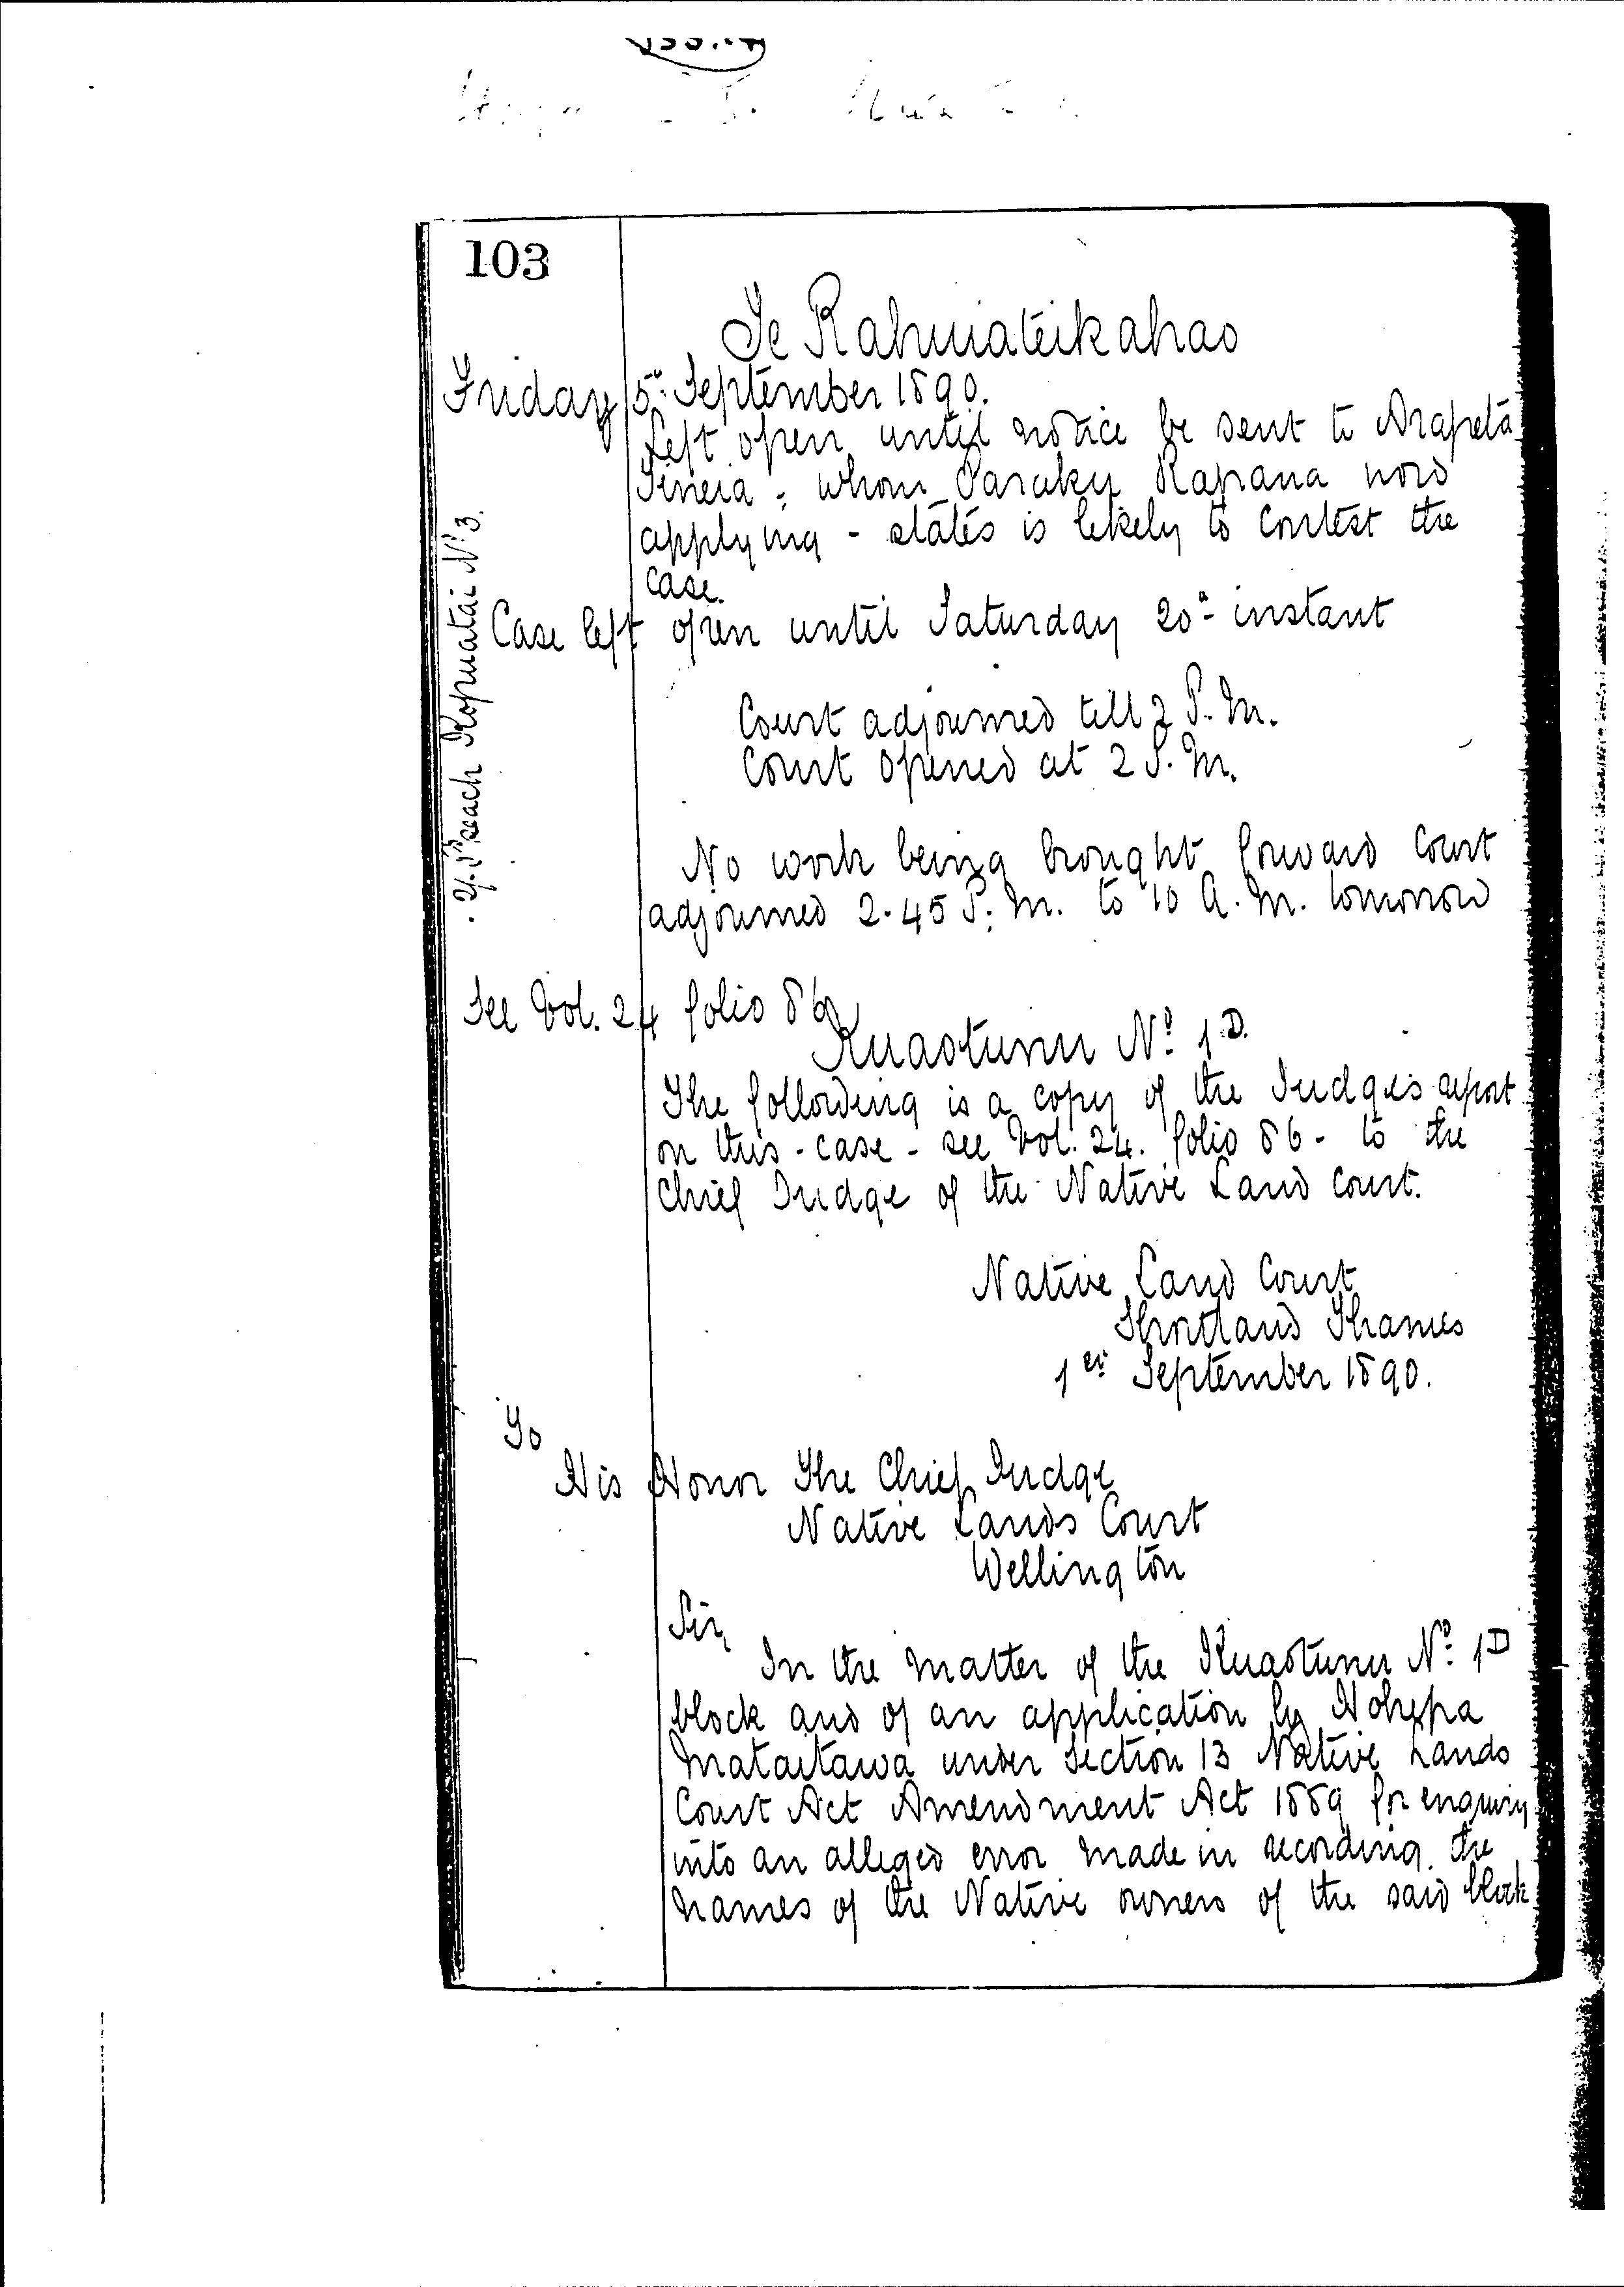 103
Te Rahuiateikahao
Friday 5th September 1890.
Left open until notice be sent to Arapeta
whom Paraku Rapana now
applying - states is likely to contest the
case.
Case left open until Saturday 20th instant
Court adjourned till 2 P.M.
Court opened at 2 P.M.
No work being brought forward Court
adjourned 2.45 P.M. to 10 A.M. tomorrow
Beach Kopuatai No 3.
See Vol. 24 folio 86
Kuaotunu No. 1D
The following is a copy of the Judge's report
on this - case - see Vol. 24. folio 86 - to the
Chief Judge of the Native Land Court.
Native Land Court
Shortland Thames
1st September 1890.
To
His Honor The Chief Judge
Native Lands Court
Wellington
Sir,
In the matter of the Kuaotunu No. 1D
block and of an application by Hohepa
Mataitawa under Section 13 Native Lands
Court Act Amendment Act 1889 for enquiry
into an alleged error made in recording the
names of the Native owners of the said block